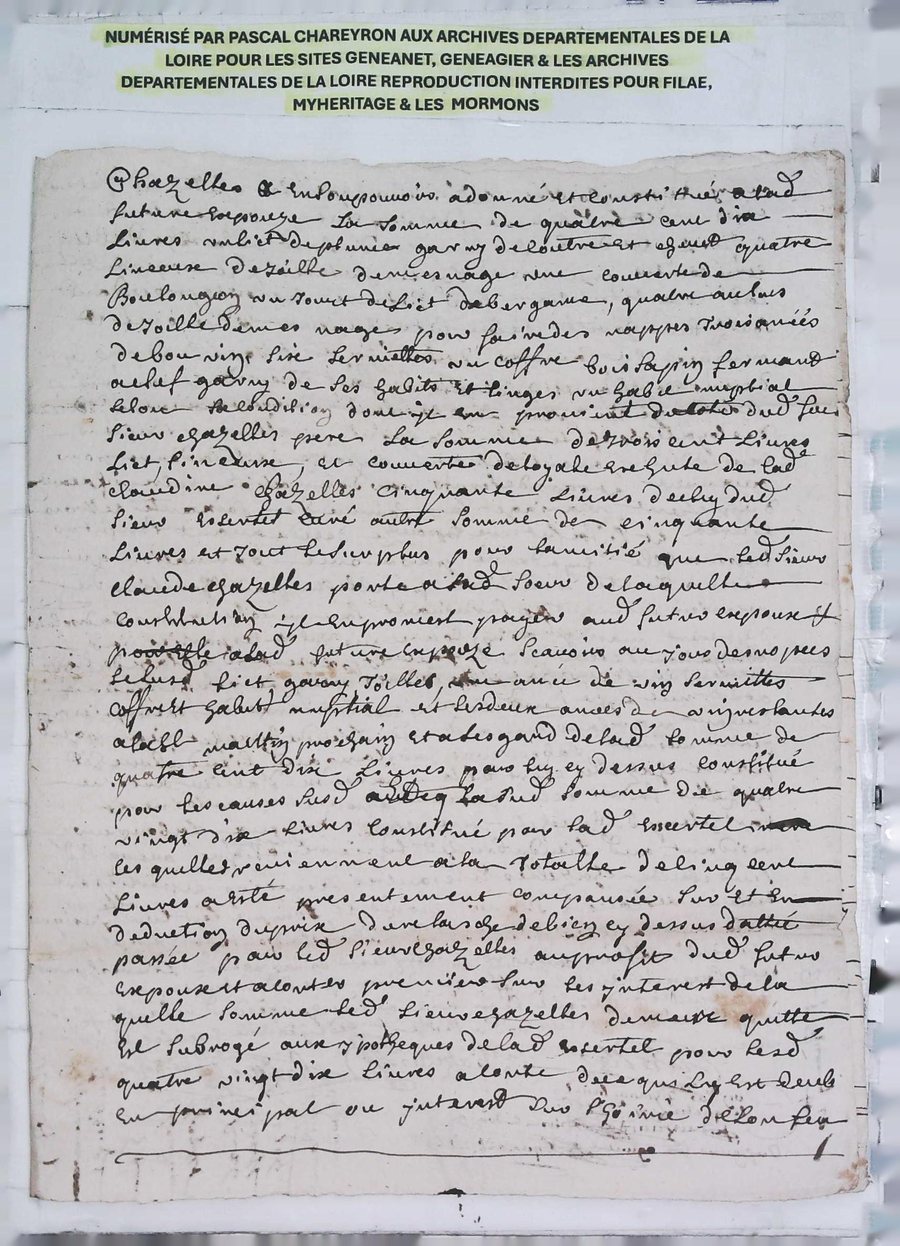 NUMÉRISÉ PAR PASCAL CHAREYRON AUX ARCHIVES DEPARTEMENTALES DE LA
LOIRE POUR LES SITES GENEANET, GENEAGIER & LES ARCHIVES
DEPARTEMENTALES DE LA LOIRE REPRODUCTION INTERDITES POUR FILAE,
MYHERITAGE & LES MORMONS
Chazelles & en son pouvoir a donné et constitué a lad
future Espouze la somme de quatre cent dix
Livres un lict de plume garny de coutre et quatre
Linceux de toille de mesnage une couverte de
un tour de Lict de bergame, quatre aulnes
de toille de mesnage pour faire des nappes trois anées
de bon vin six serviettes un coffre bois sapin fermant
a clef garny de ses habits et linges un habit nuptial
selon sa condition dont il en provient dud feu
Sieur chazelles pere La somme de trois cent Livres
Lict, linceux, et couverte de lad
claudine chazelles cinquante Livres de dud
Sieur Essertel curé autre somme de cinquante
Livres et tout le surplus pour lamitié que led Sieur
Claude chazelles porte a lad soeur de laquelle
constitution il en promest payer aud futur espoux &
a lad future espouze scavoir au jour des nopces
le susd lict garny toilles, une anée de vin serviettes
coffre et habit nuptial et les deux anées de vin restantes
a la St prochain et a lesgard de lad somme de
quatre cent dix Livres par luy cy dessus constitué
pour les causes susd la sud somme de quatre
vingt dix Livres constitué par lad Essertel
lesquelles reviennent a la totalle de cinq cent
Livres a esté presentement compansée sur et en
deduction du prix de vente de cy dessus
passée par led Sieur chazelles au profit dud futur
espoux et a conter premier sur les interest de la
quelle somme led Sieur chazelles demeure quitte
Est subrogé aux ypotheques de lad Essertel pour lesd
quatre vingt dix Livres a conte de ce qui luy est deub
en principal ou interest sur